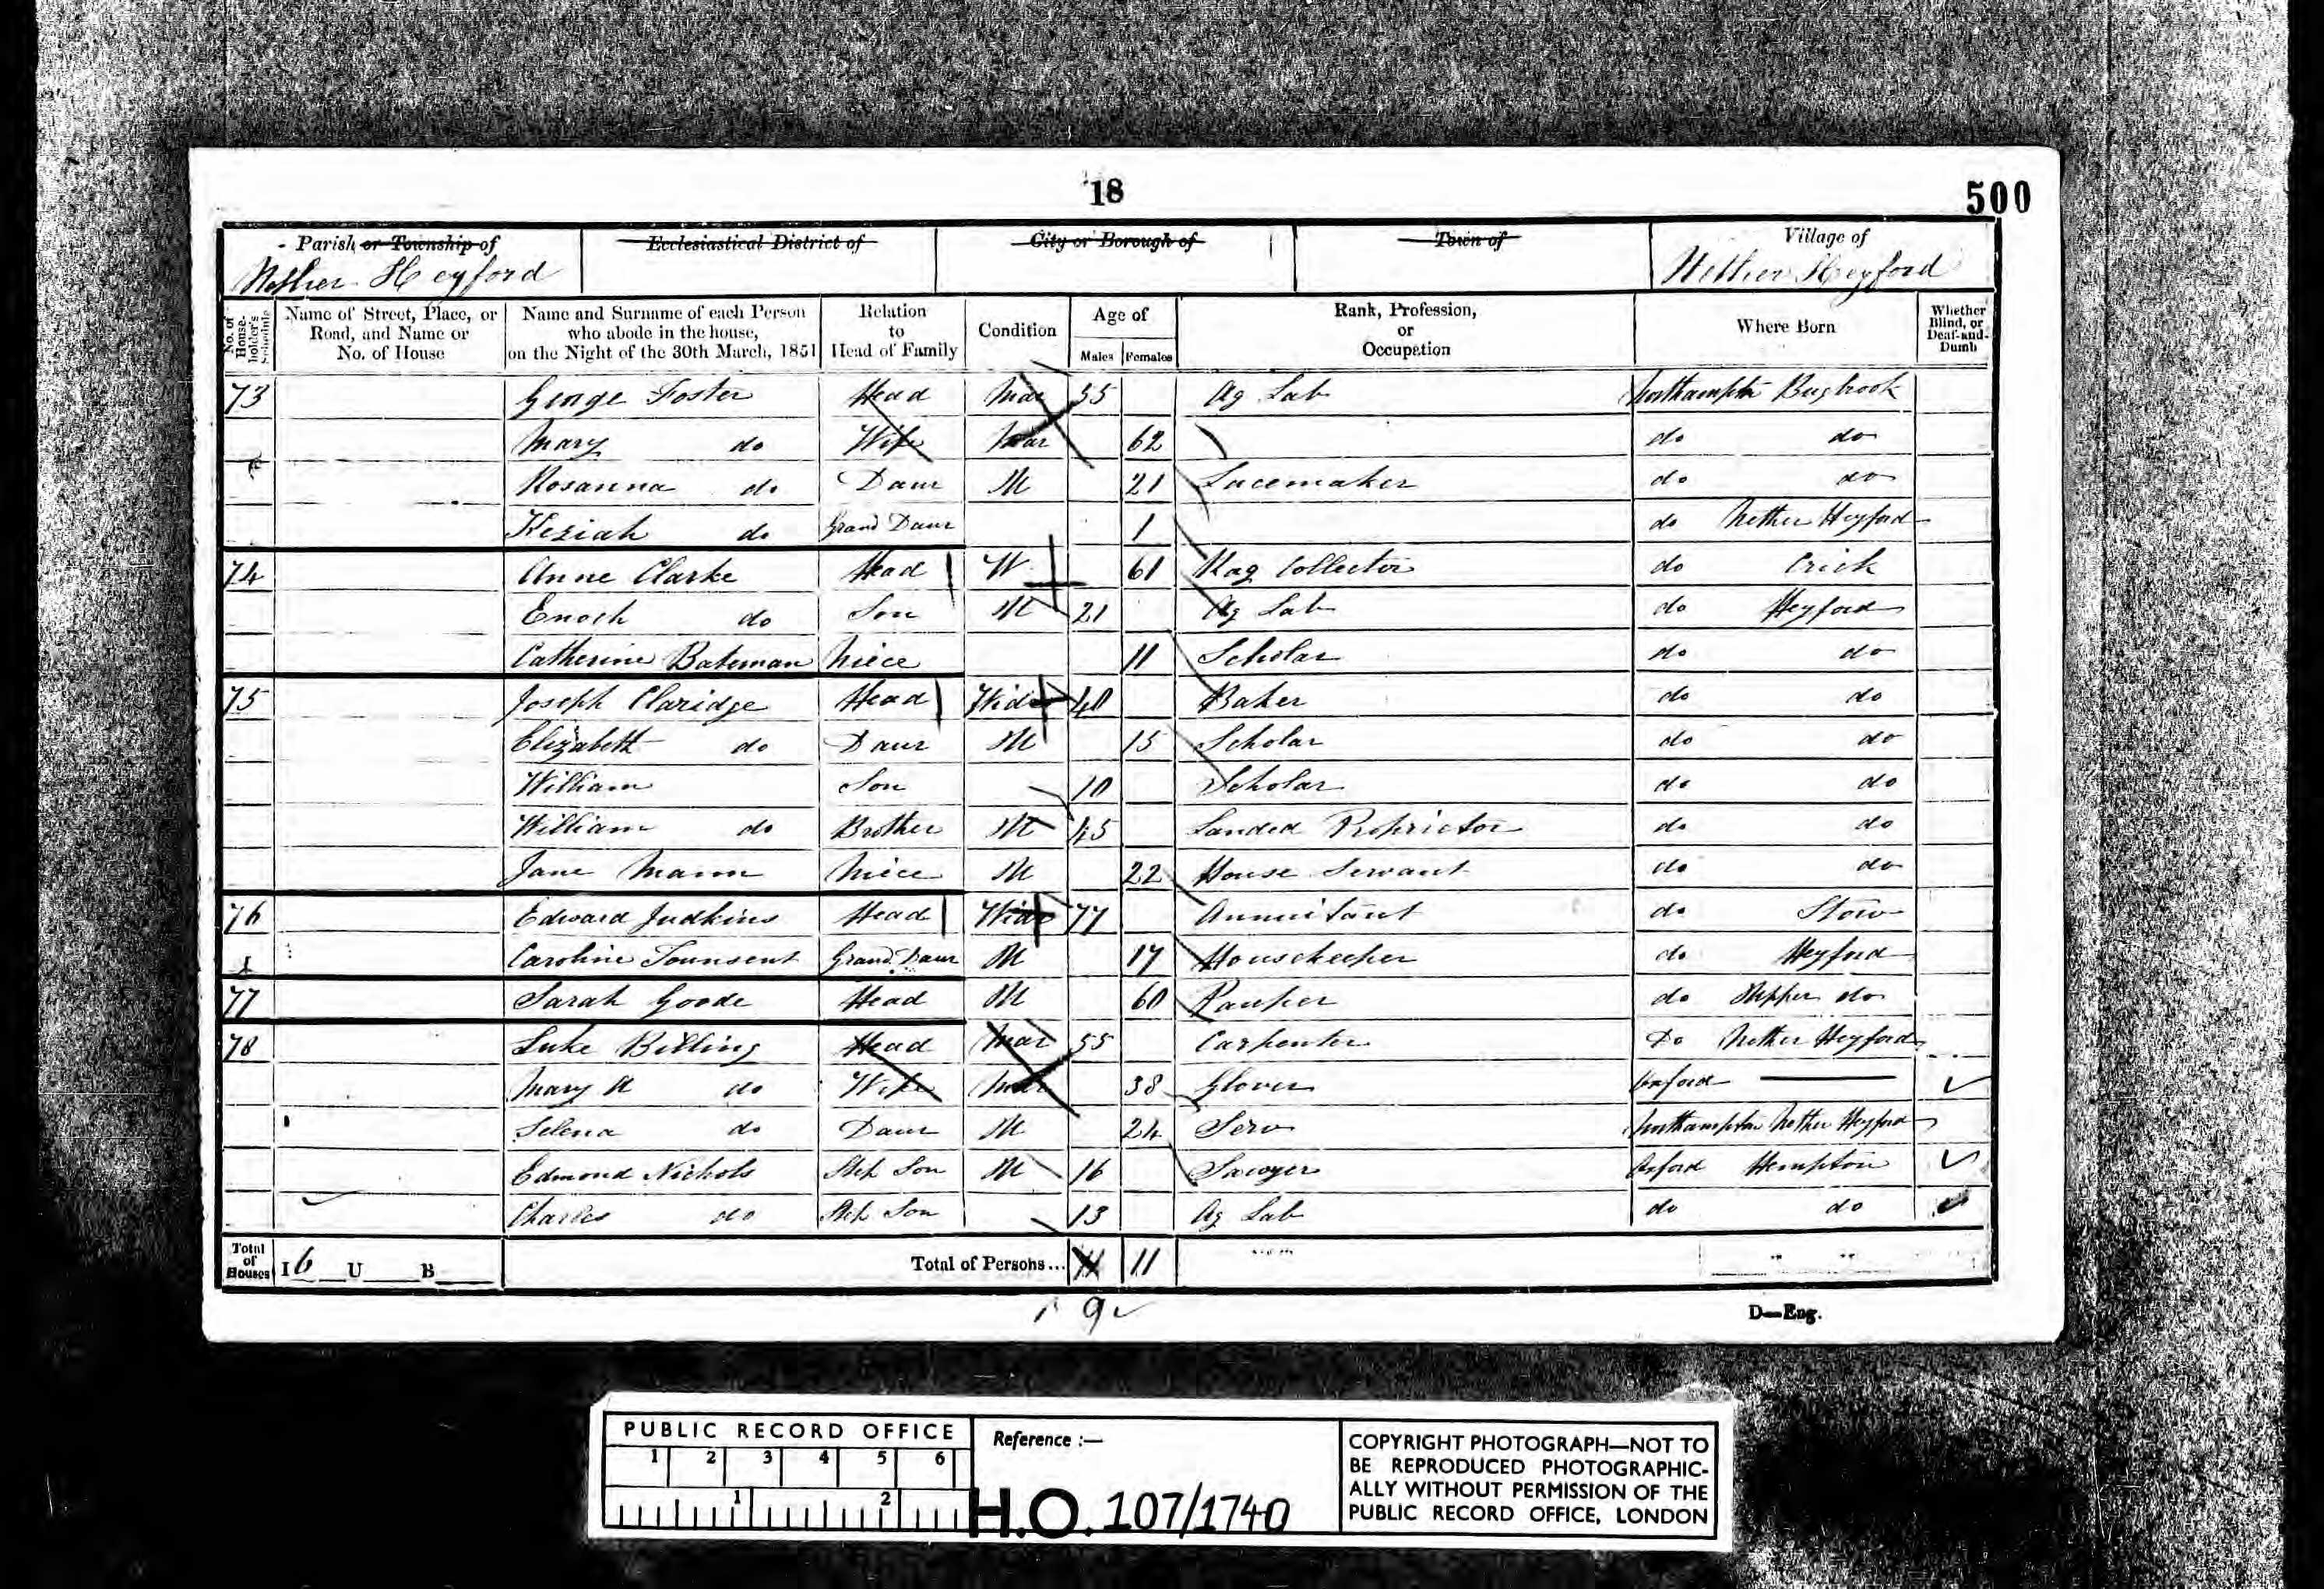 18
500
Parish or Township of
Ecclesiastical District of
City or Borough of
Town of
Village of
Nether Heyford
Nether Heyford
No. of House-holder's Schedule
Name of Street, Place, or Road, and Name or No. of House
Name and Surname of each Person who abode in the house, on the Night of the 30th March, 1851
Relation to Head of Family
Condition
Age of
Males Females
Rank, Profession, or Occupation
Where Born
Whether Blind, or Deaf-and-Dumb
73 George Foster Head Mar 55 Ag Lab Northampton Bugbrook
Mary do Wife Mar 62 do do
Rosanna do Daur M 21 Lacemaker do do
Keziah do Grand Daur 1 do Nether Heyford
74 Anne Clarke Head W 61 Rag Collector do Crick
Enoch do Son M 21 Ag Lab do Heyford
Catherine Bateman Niece 11 Scholar do do
75 Joseph Claridge Head Widr 40 Baker do do
Elizabeth do Daur M 15 Scholar do do
William Son 10 Scholar do do
William do Brother M 45 Landed Proprietor do do
Jane Mann Niece M 22 House Servant do do
76 Edward Judkins Head Widr 77 Annuitant do Stow
Caroline Townsent Grand Daur M 17 Housekeeper do Heyford
77 Sarah Goode Head M 60 Pauper do do
78 Luke Billing Head Mar 55 Carpenter Do Nether Heyford
Mary A do Wife Mar 38 Glover Oxford
Selena do Daur M 24 Serv Northampton Nether Heyford
Edmond Nichols Step Son M 16 Sawyer Oxford Hempton
Charles do Step Son 13 Ag Lab do do
Total of Houses I 6 U B
Total of Persons... 11 11
9
D—Eng.
PUBLIC RECORD OFFICE
1 2 3 4 5 6
1 2
Reference :—
H.O. 107/1740
COPYRIGHT PHOTOGRAPH—NOT TO
BE REPRODUCED PHOTOGRAPHIC-
ALLY WITHOUT PERMISSION OF THE
PUBLIC RECORD OFFICE, LONDON